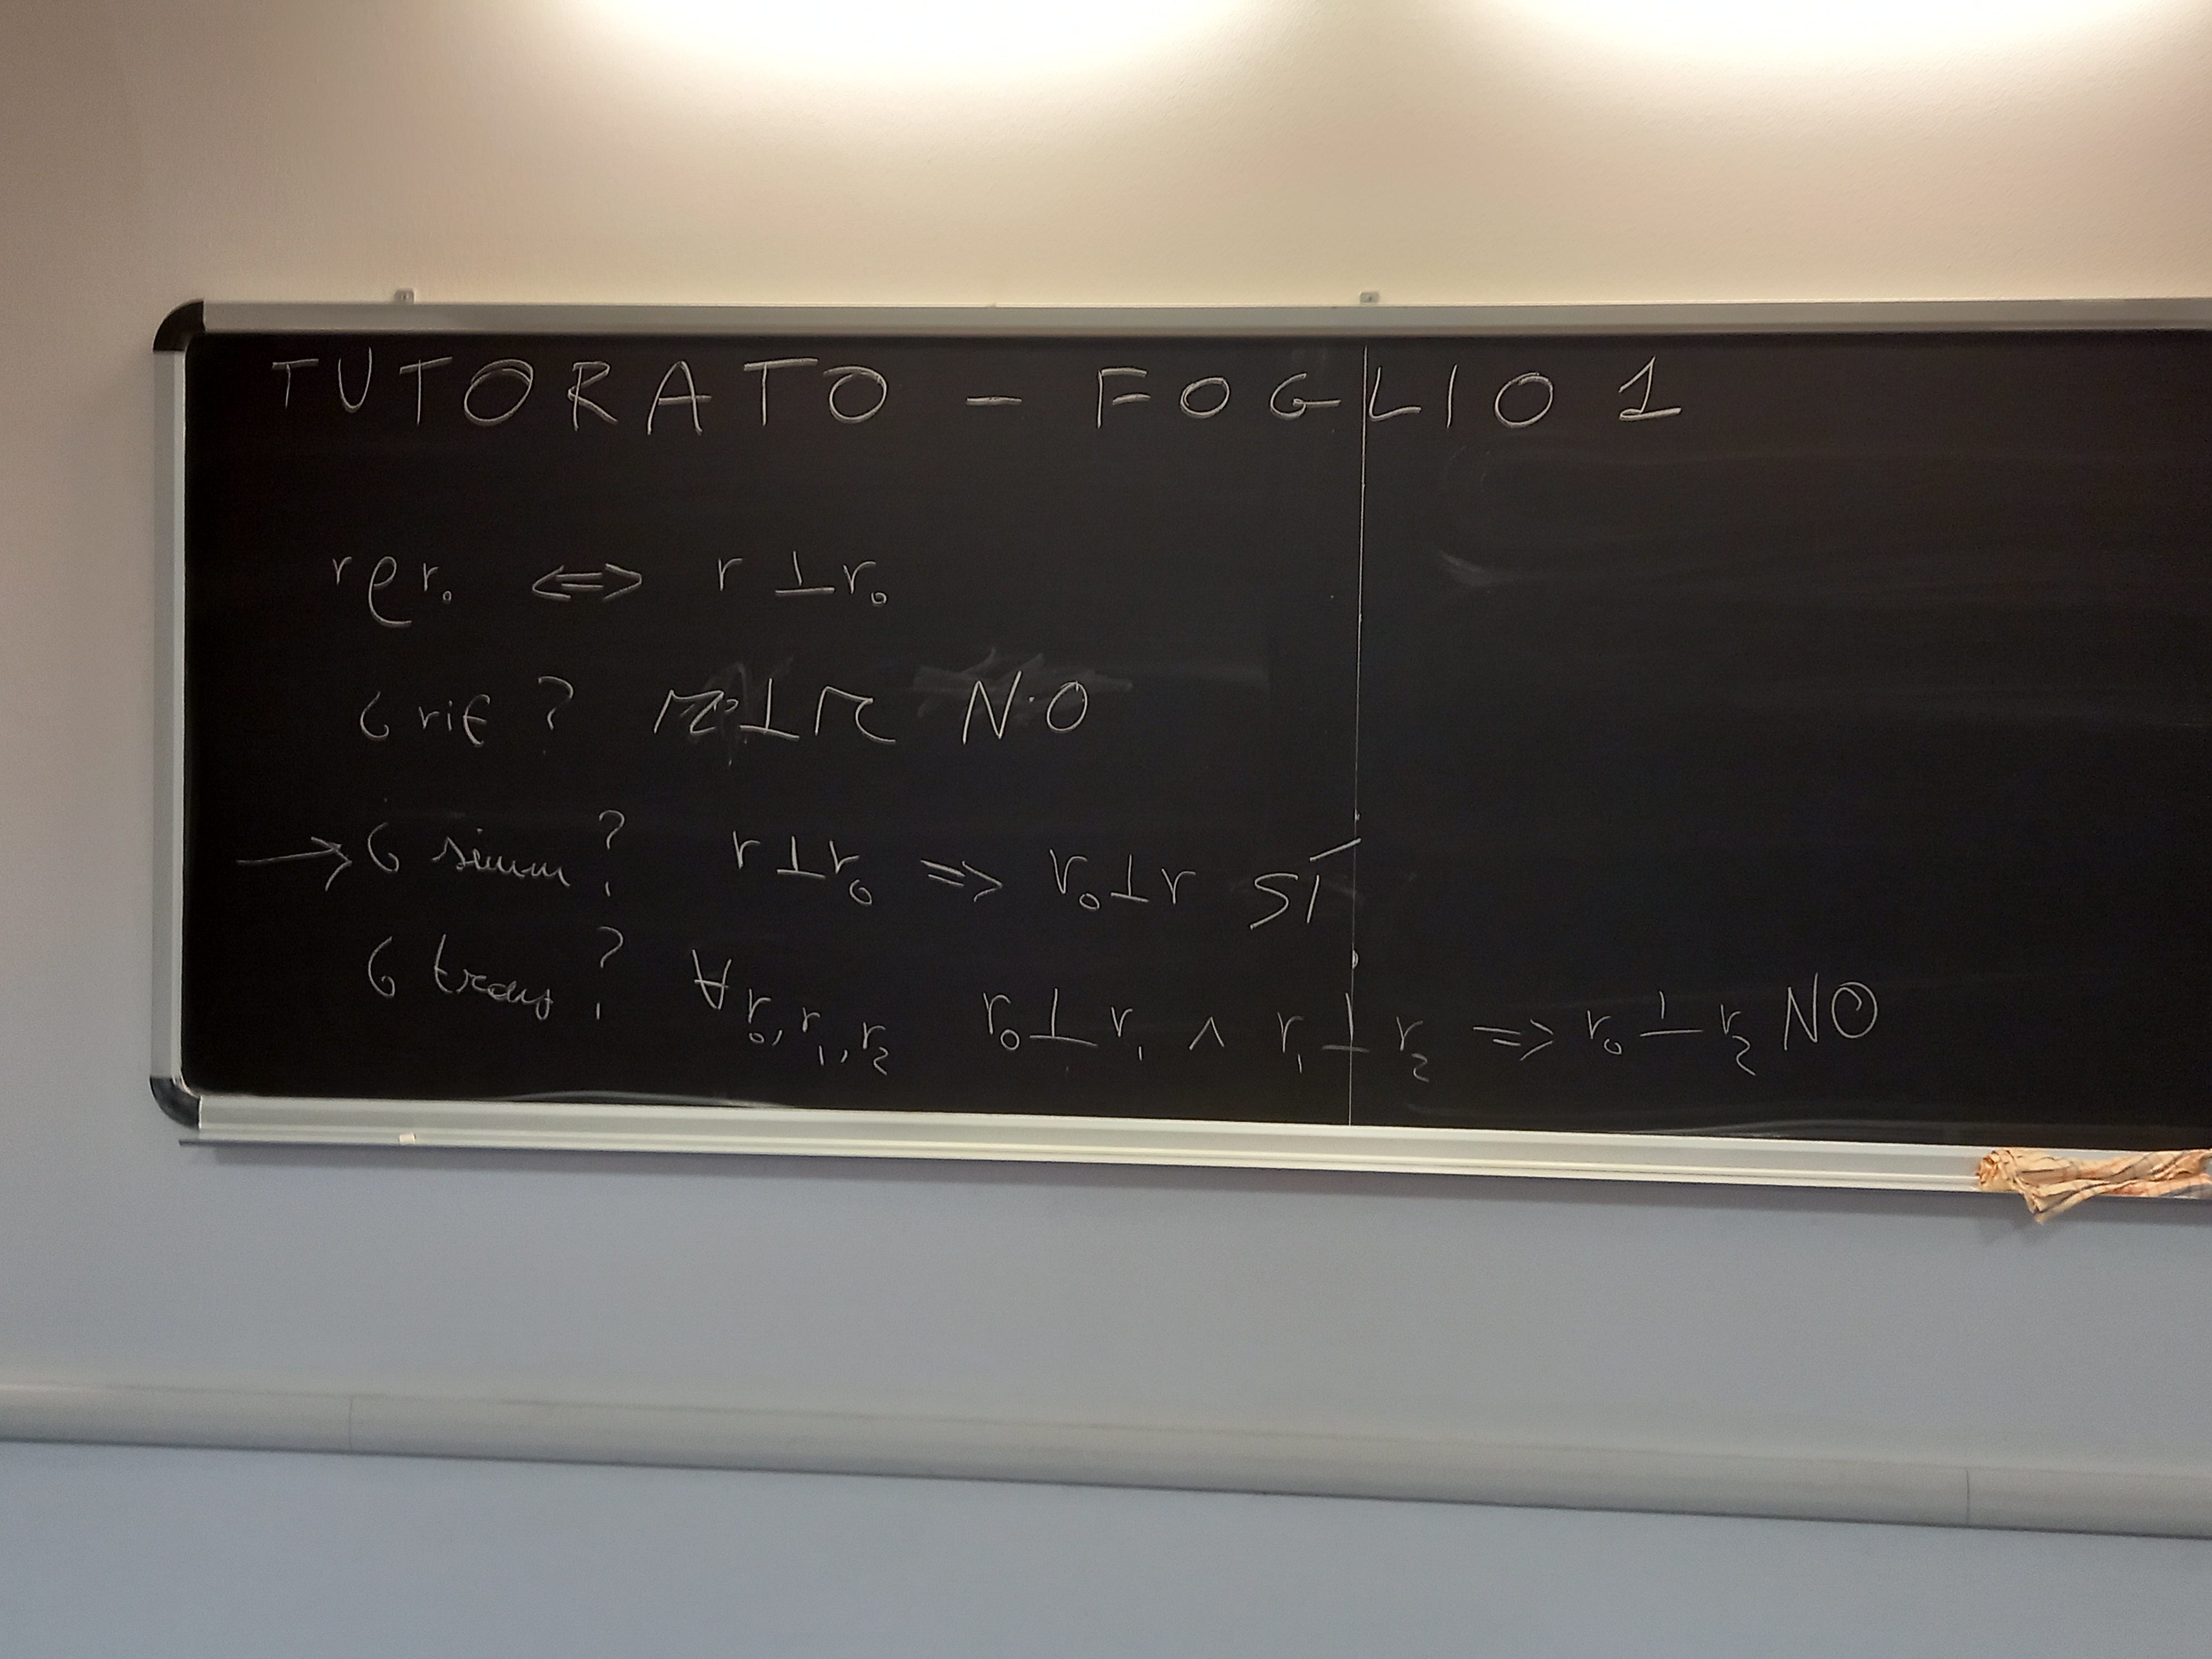 TUTORATO - FOGLIO 1
r ρ r₀ ⟺ r ⊥ r₀
6 rif ? r ⊥ r NO
→ 6 simm ? r ⊥ r₀ => r₀ ⊥ r SÍ
6 trans ? ∀ r₀, r₁, r₂ r₀ ⊥ r₁ ∧ r₁ ⊥ r₂ => r₀ ⊥ r₂ NO